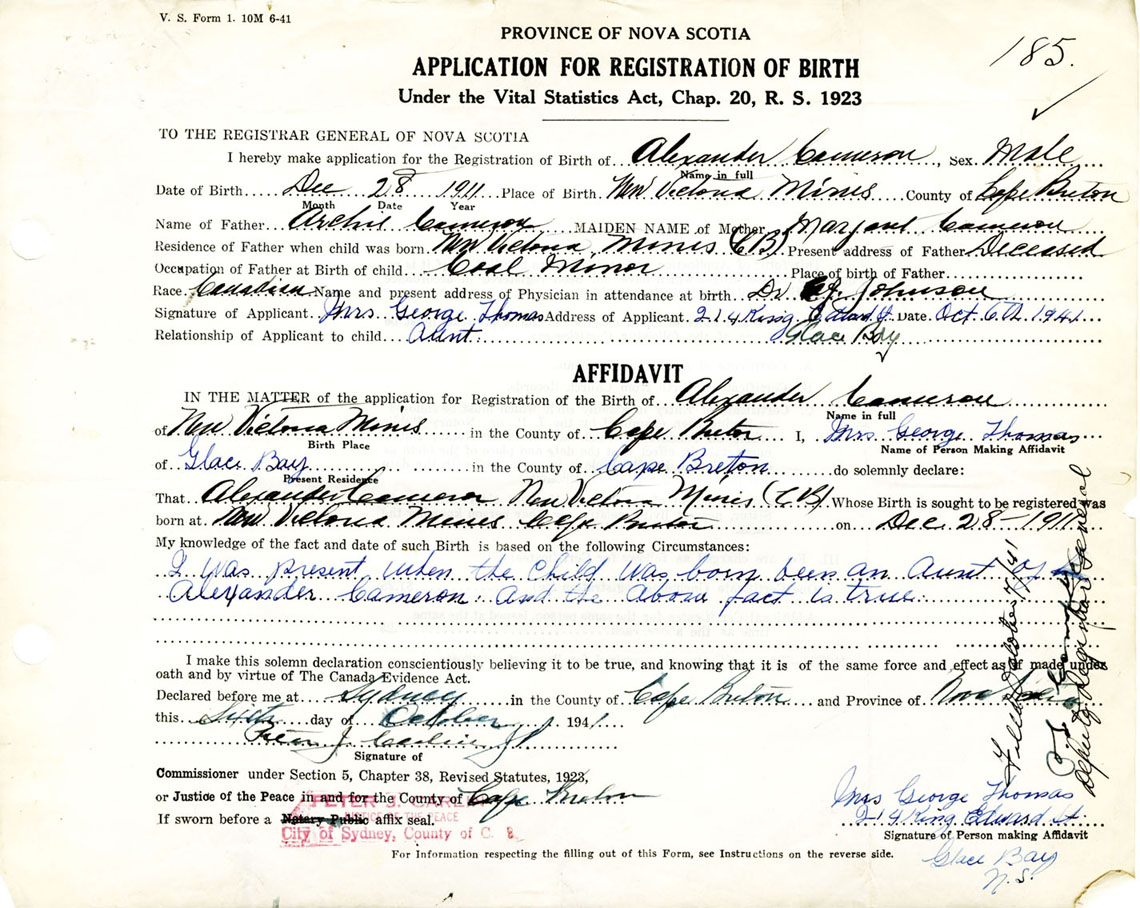 V. S. Form 1. 10M 6-41
185.
PROVINCE OF NOVA SCOTIA
APPLICATION FOR REGISTRATION OF BIRTH
Under the Vital Statistics Act, Chap. 20, R. S. 1923
TO THE REGISTRAR GENERAL OF NOVA SCOTIA
I hereby make application for the Registration of Birth of Alexander Cameron, Sex Male
Name in full
Date of Birth Dec 28 1911 Place of Birth New Victoria Mines County of Cape Breton
Month Date Year
Name of Father Archie Cameron MAIDEN NAME of Mother Margaret Cameron
Residence of Father when child was born New Victoria Mines (CB) Present address of Father Deceased
Occupation of Father at Birth of child Coal Minor Place of birth of Father
Race Canadian Name and present address of Physician in attendance at birth Dr Johnson
Signature of Applicant Mrs George Thomas Address of Applicant 214 King Edward St. Date Oct 6th 1941
Relationship of Applicant to child Aunt. Glace Bay
AFFIDAVIT
IN THE MATTER of the application for Registration of the Birth of Alexander Cameron
Name in full
of New Victoria Mines in the County of Cape Breton I, Mrs George Thomas
Birth Place Name of Person Making Affidavit
of Glace Bay in the County of Cape Breton do solemnly declare:
Present Residence
That Alexander Cameron New Victoria Mines (CB) Whose Birth is sought to be registered was
born at New Victoria Mines Cape Breton on Dec. 28-1911
My knowledge of the fact and date of such Birth is based on the following Circumstances:
I was present when the child was born been an Aunt of
Alexander Cameron. And the above fact is true.
I make this solemn declaration conscientiously believing it to be true, and knowing that it is of the same force and effect as if made under
oath and by virtue of The Canada Evidence Act.
Declared before me at Sydney in the County of Cape Breton and Province of Nova Scotia
this Sixth day of October 1941.
Peter J.
Signature of
Commissioner under Section 5, Chapter 38, Revised Statutes, 1923,
or Justice of the Peace in and for the County of Cape Breton
PETER J.
JUSTICE OF THE PEACE
If sworn before a Notary Public affix seal.
City of Sydney, County of C. B.
Mrs George Thomas
214 King Edward St.
Signature of Person making Affidavit
For Information respecting the filling out of this Form, see Instructions on the reverse side.
Glace Bay
N.S.
Filed October /41
Deputy Registrar General